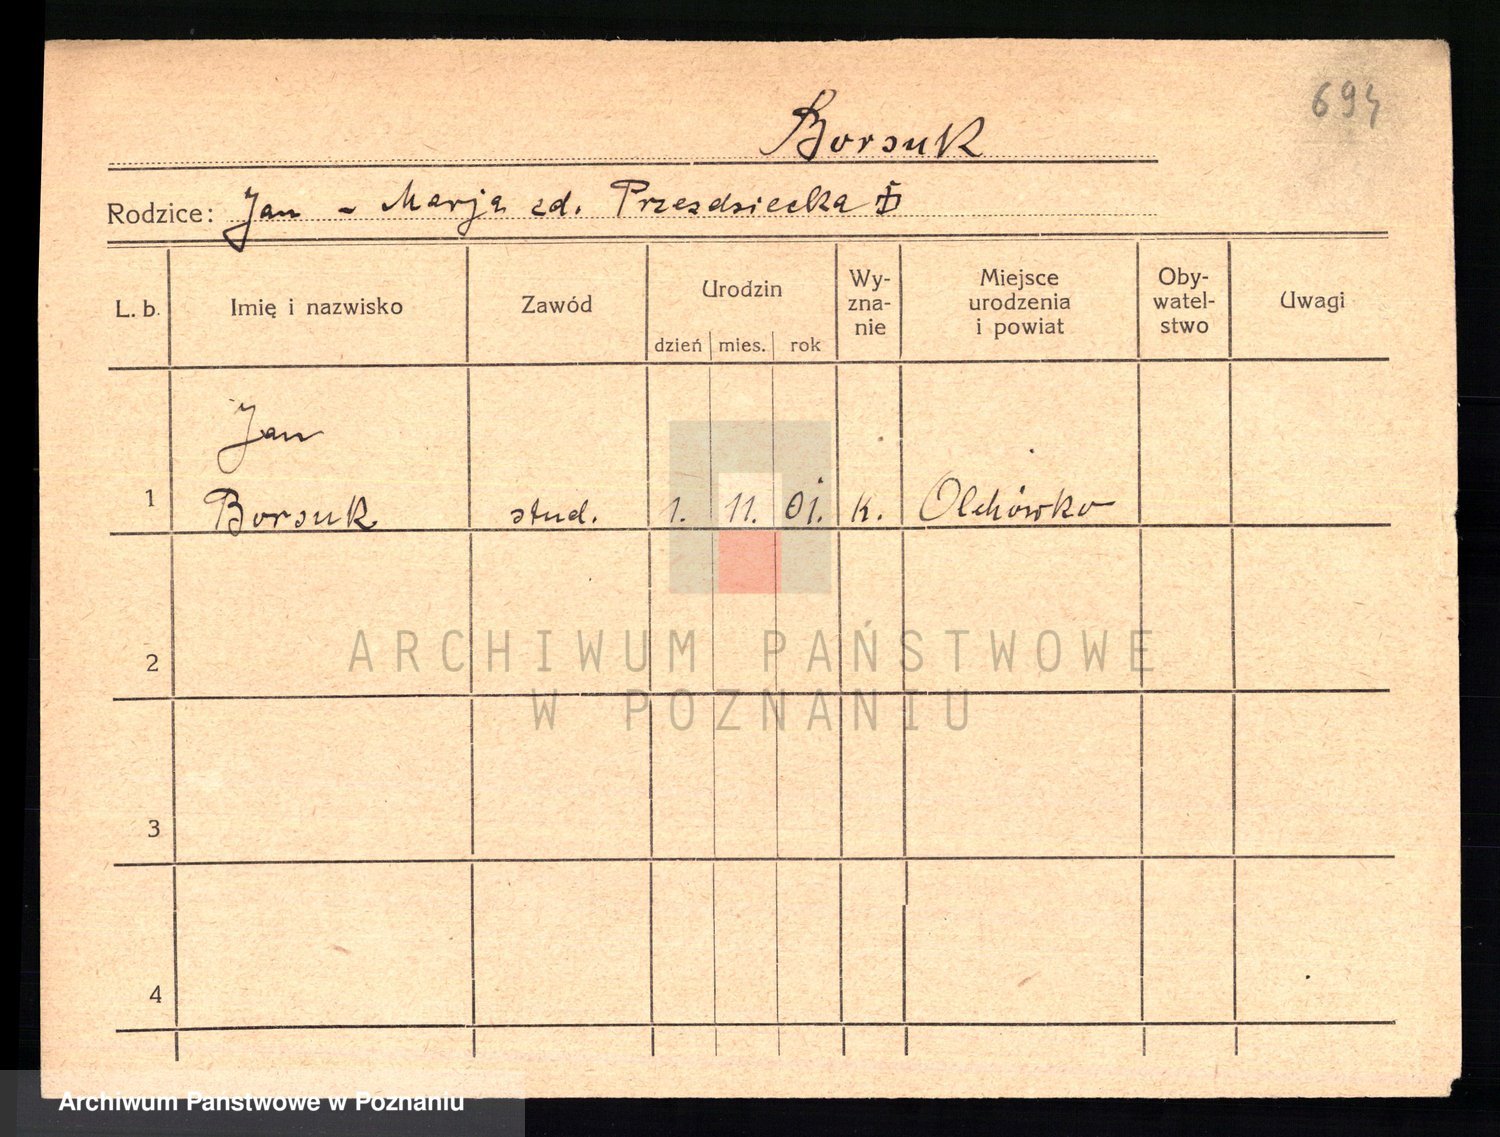 694
Borsuk
Rodzice: Jan - Marja zd. Przezdziecka
L. b. Imię i nazwisko Zawód Urodzin Wy-zna-nie Miejsce urodzenia i powiat Oby-watel-stwo Uwagi
dzień mies. rok
Jan
1 Borsuk stud. 1. 11. 01. k. Olchówko
2
ARCHIWUM PAŃSTWOWE
W POZNANIU
3
4
Archiwum Państwowe w Poznaniu